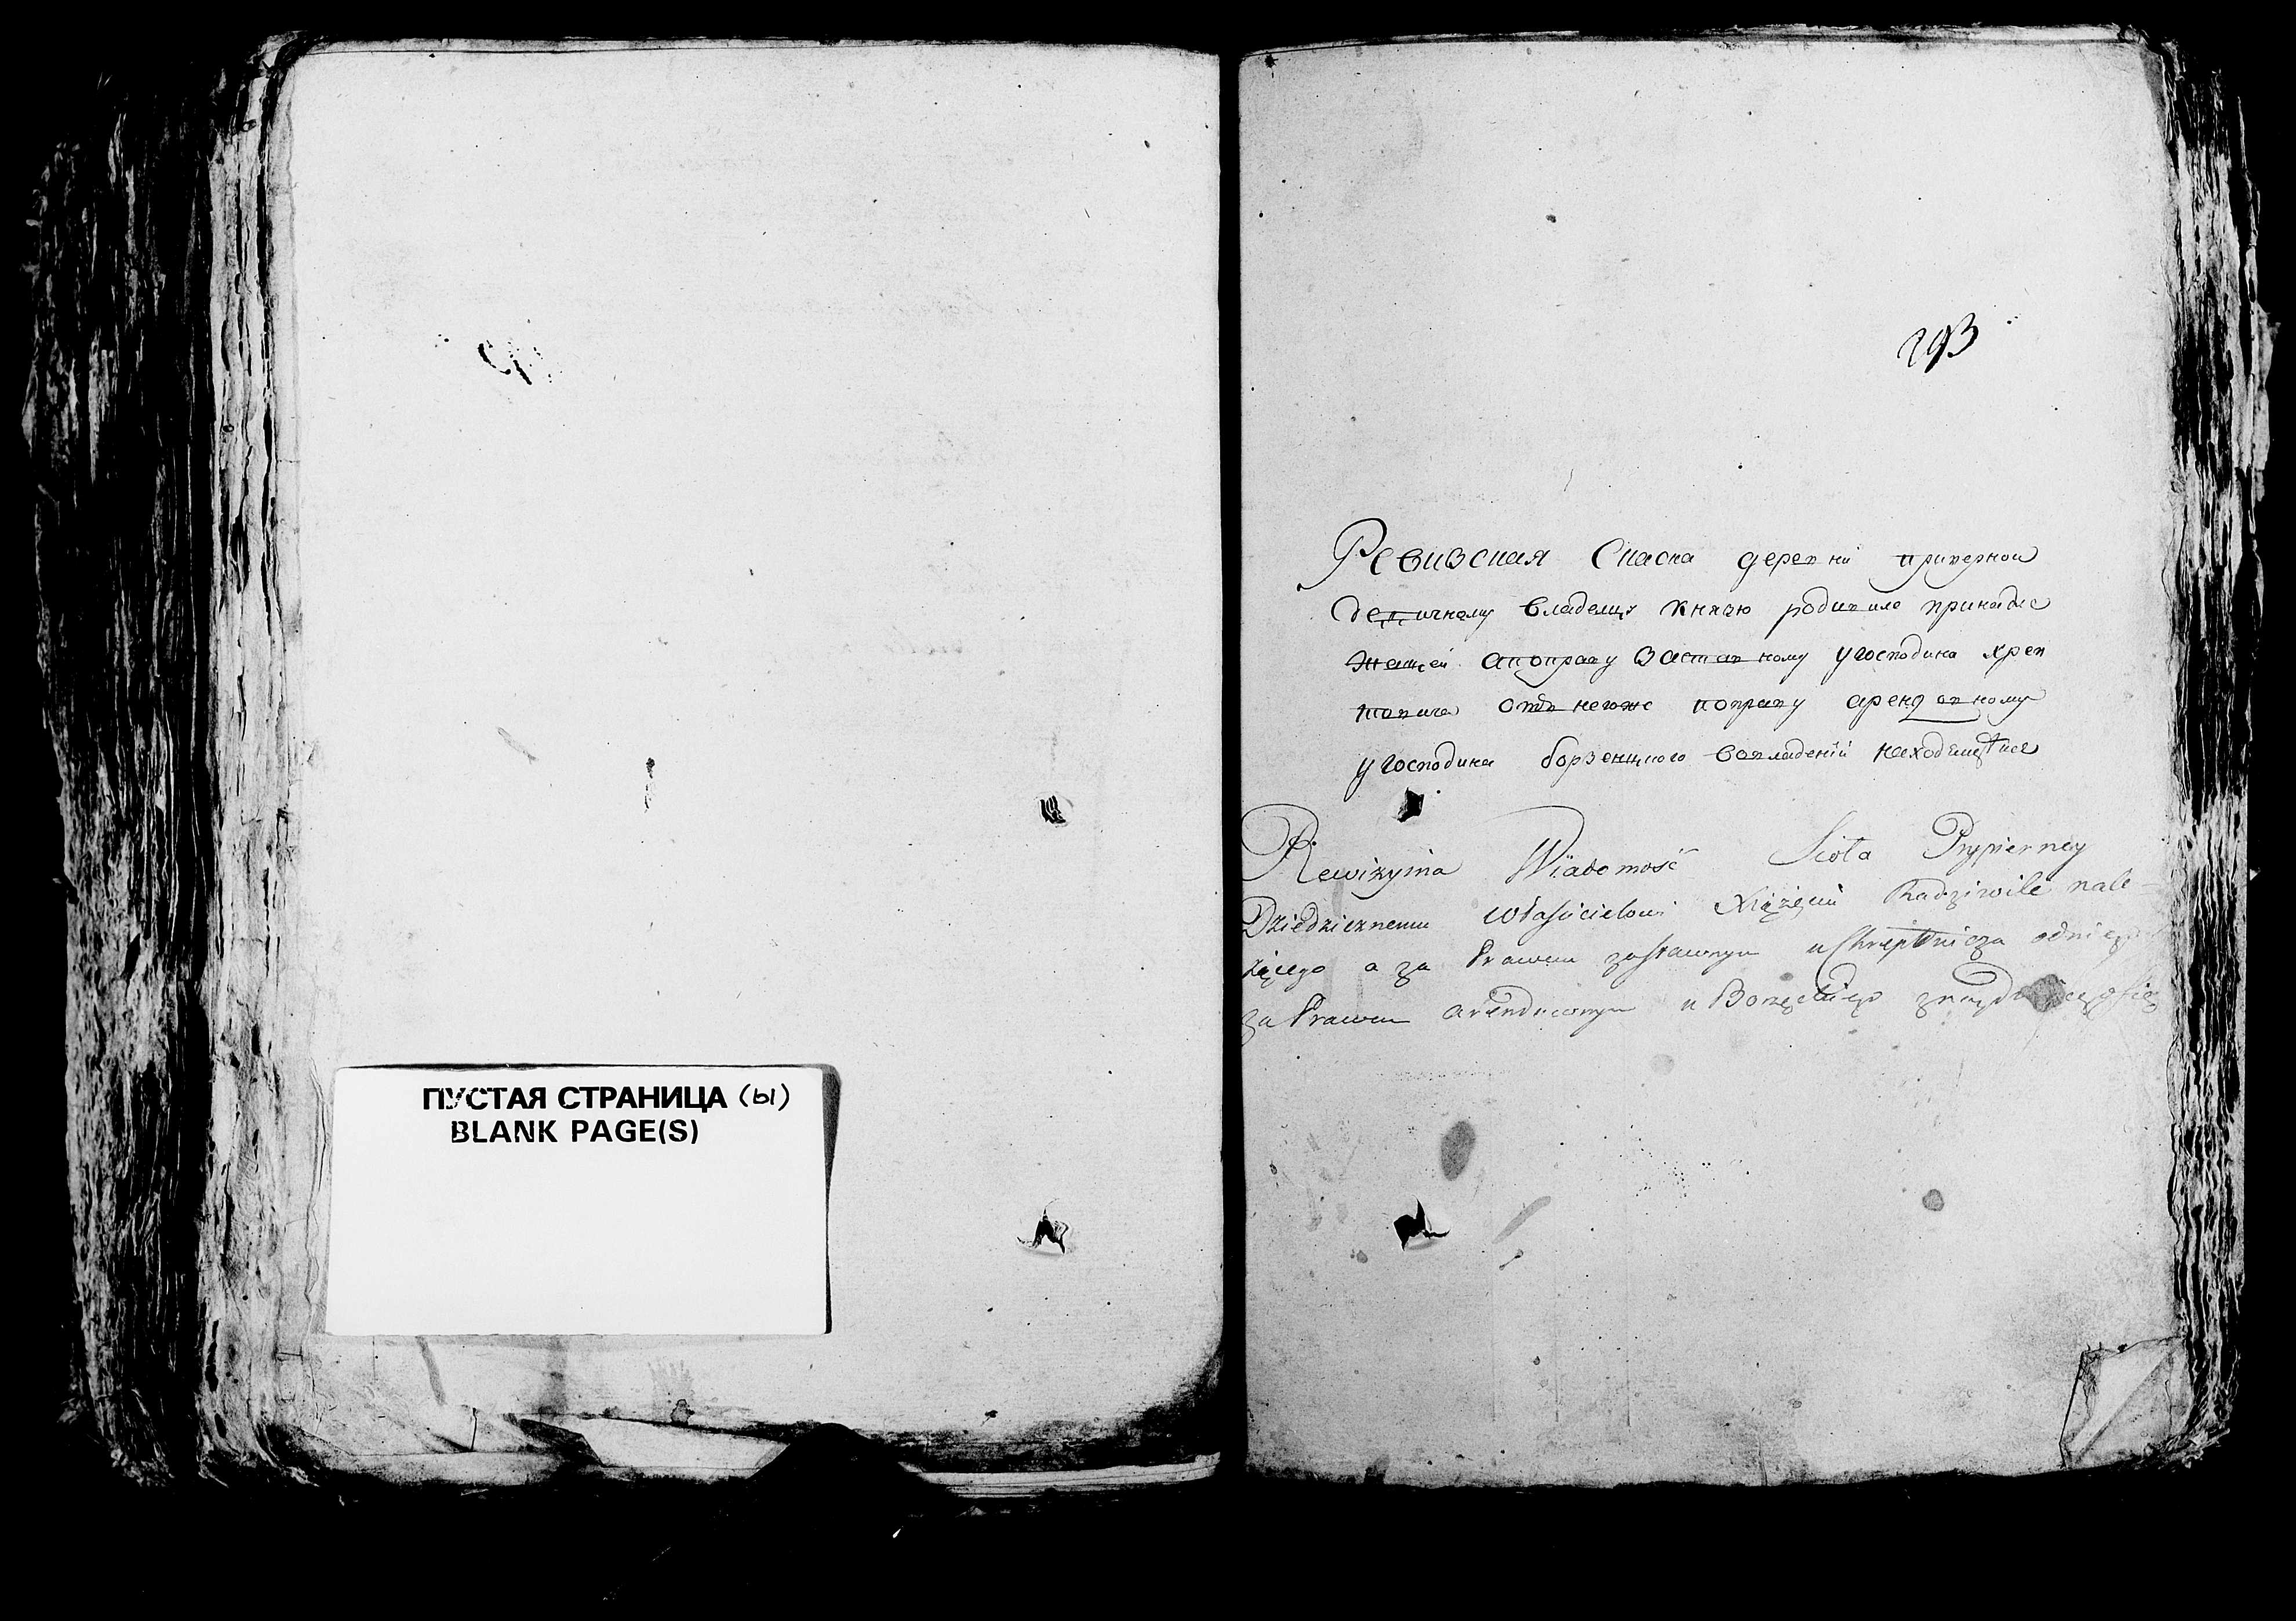 ПУСТАЯ СТРАНИЦА (ы)
BLANK PAGE(S)
293
Ревизская Скаска деревни приперной
дедичному владелцу князю родивиле принадле
жащей апоправу заставному угосподина хреп
товича отъ негоже поправу арендовному
угосподина борзенцкого вовладении находящейся
Rewizyina Wiadomość Sioła Prypierney
Dziedzicznemu Właścicielowi Xiążęciu Radziwile nale-
żącego a za Prawem zastawnym u Chreptowicza od niego
za Prawem arendownym u Borzęckiego znaydującego się